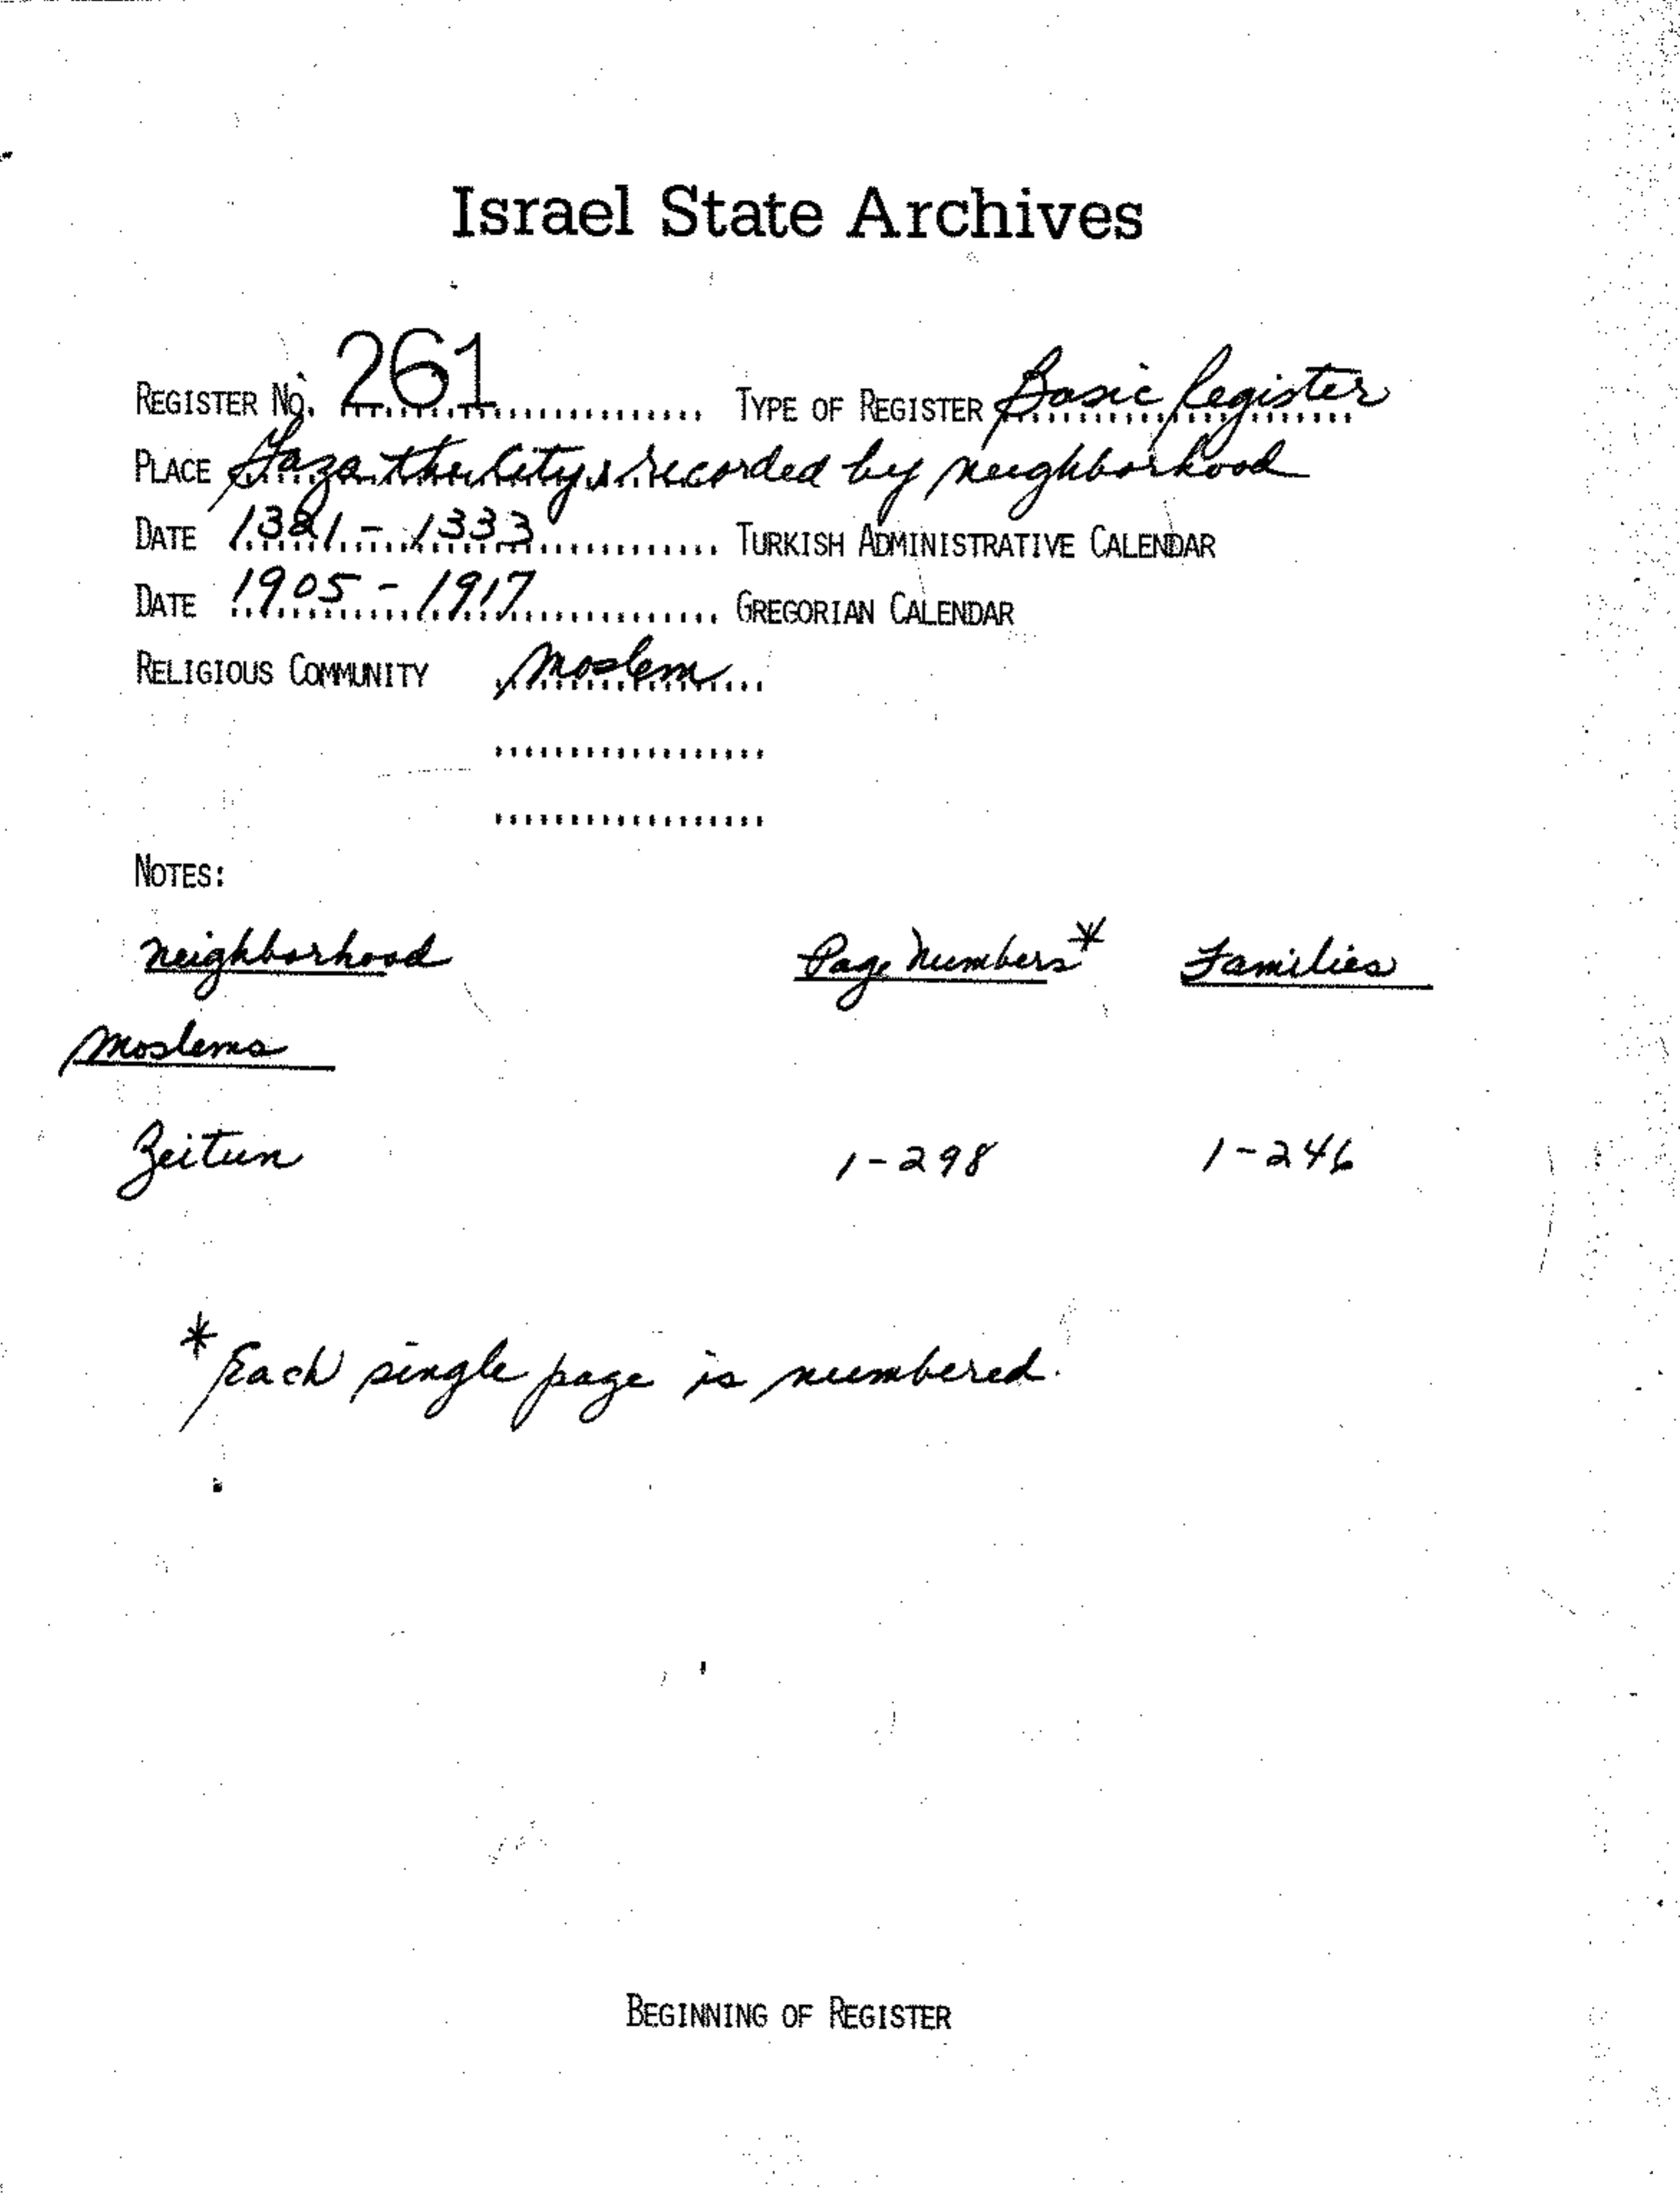 Israel State Archives
REGISTER NO. 261 TYPE OF REGISTER Basic Register
PLACE Gaza the City, recorded by neighborhood
DATE 1321 - 1333 TURKISH ADMINISTRATIVE CALENDAR
DATE 1905 - 1917 GREGORIAN CALENDAR
RELIGIOUS COMMUNITY Moslem
NOTES:
Neighborhood Page Numbers* Families
Moslems
Zeitun 1-298 1-246
* Each single page is numbered.
BEGINNING OF REGISTER